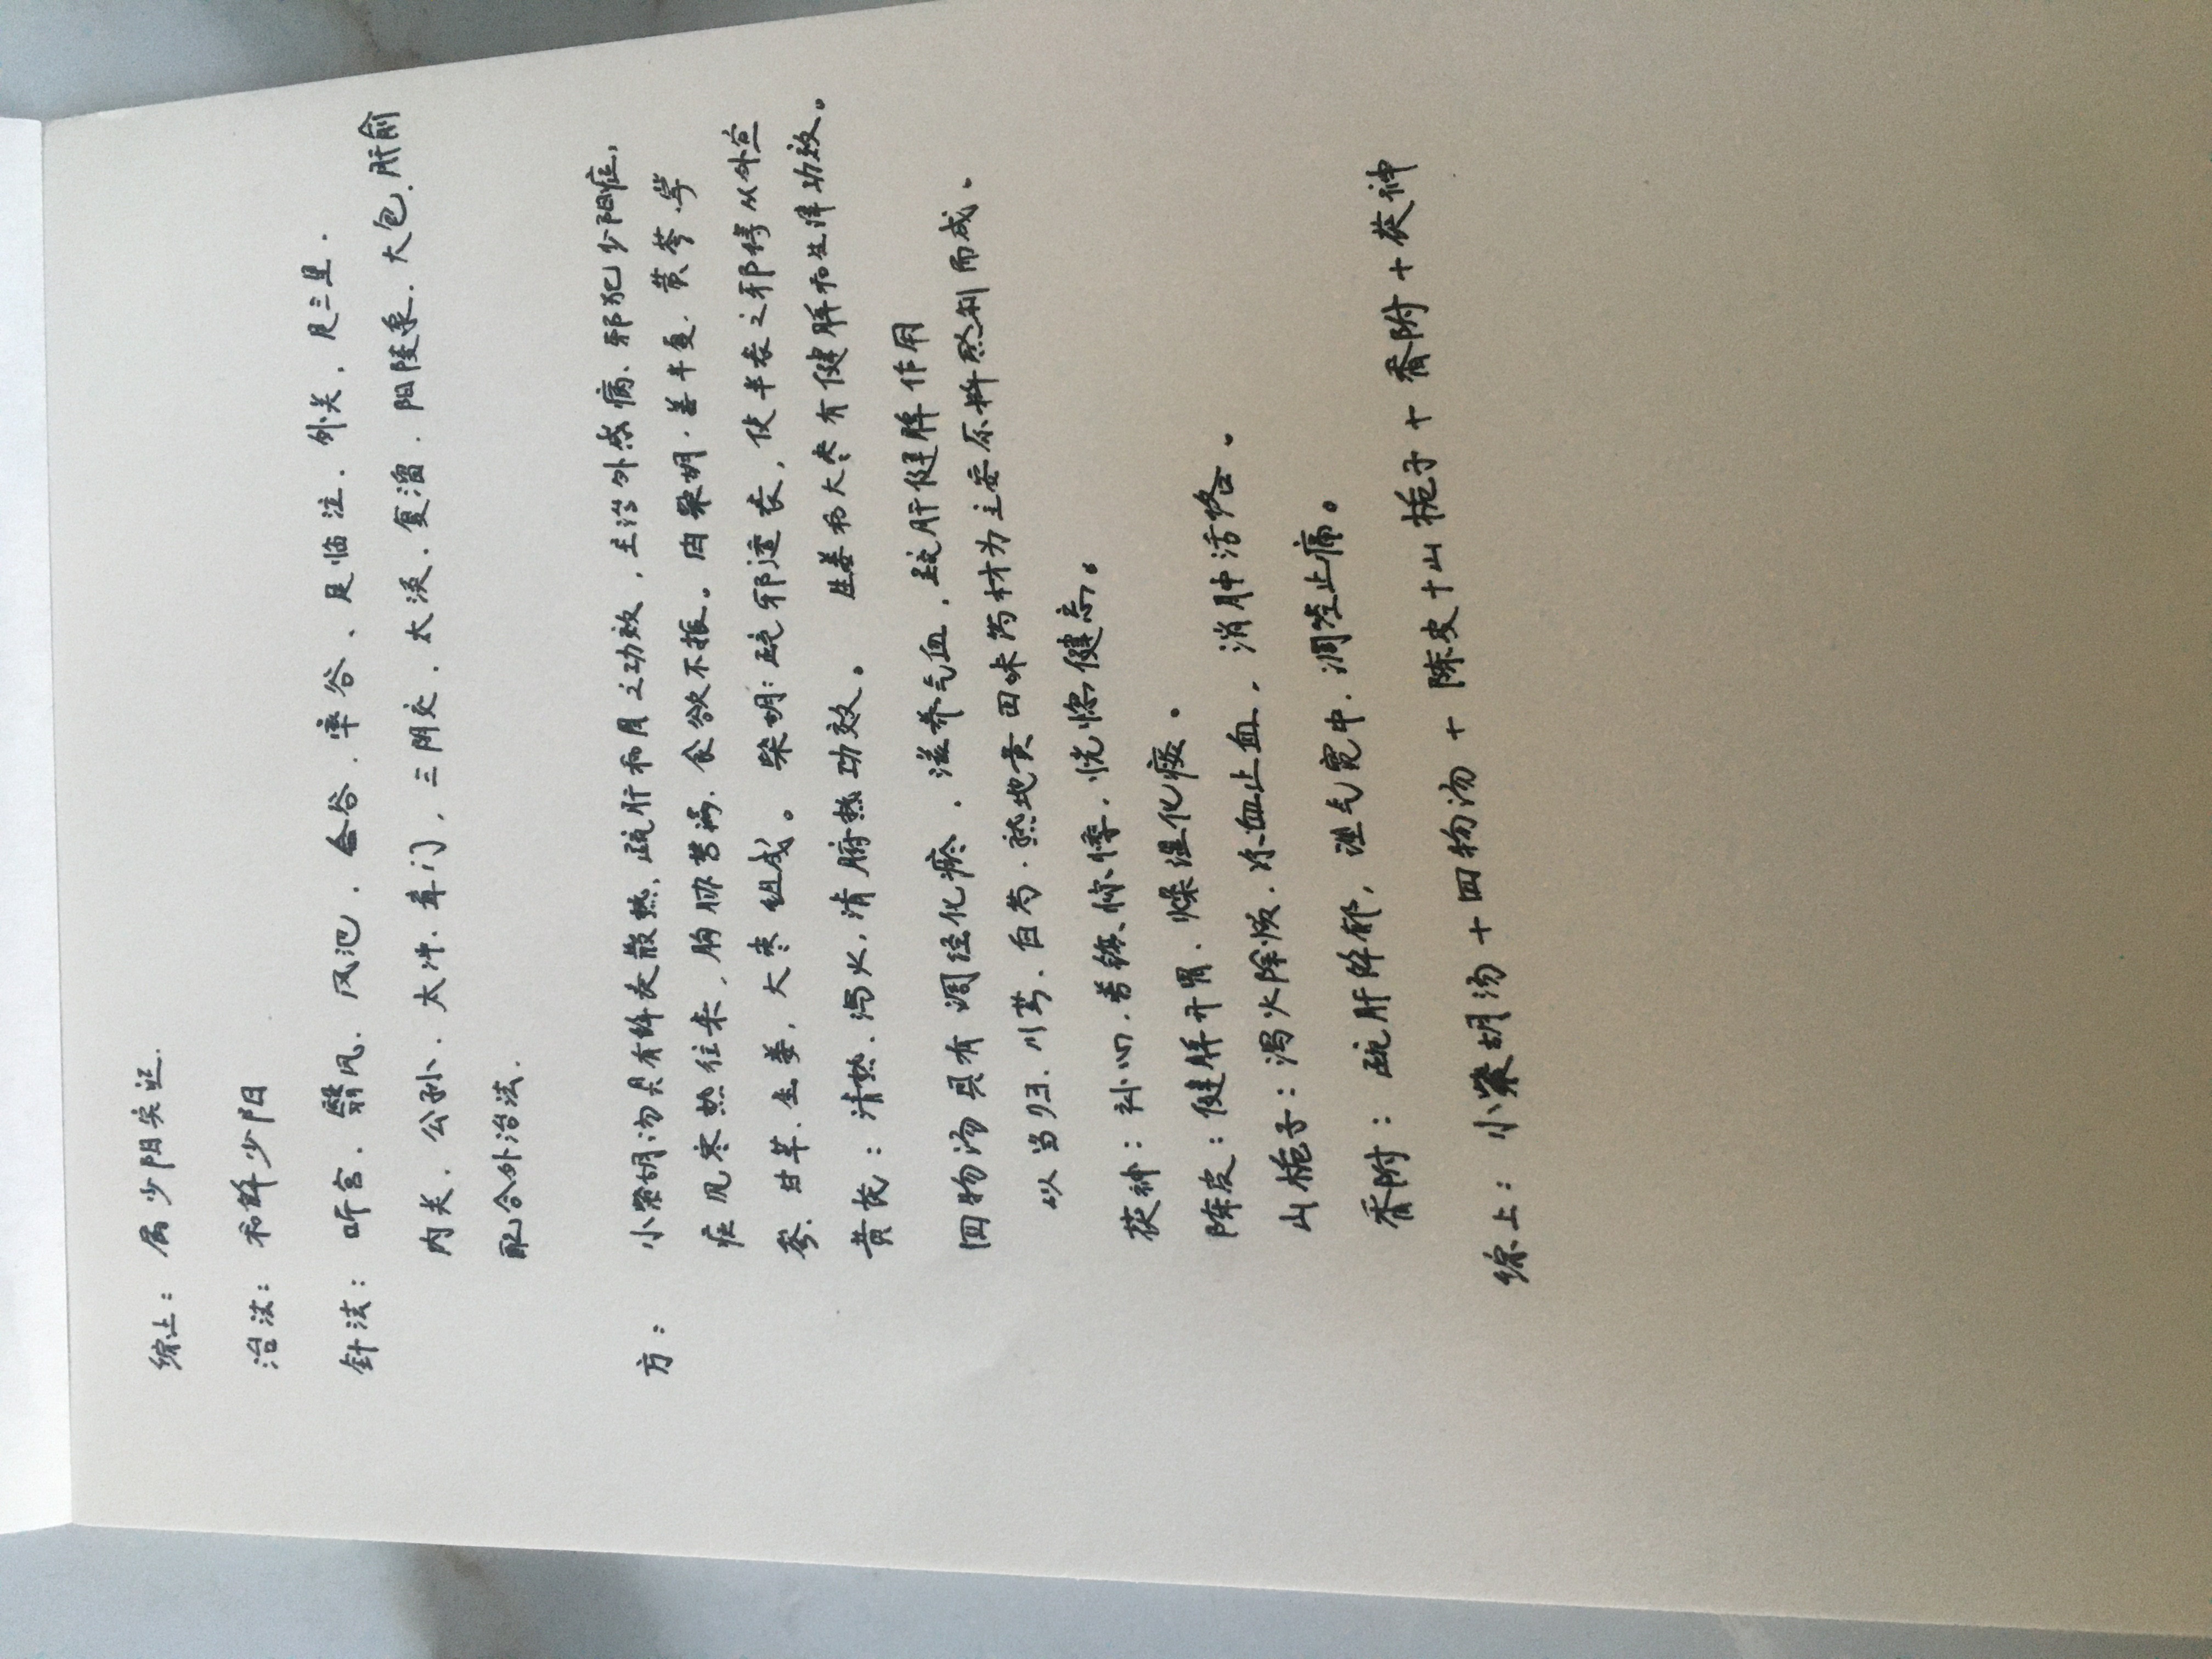 综上：属少阳实证.
治法：和解少阳
针法：听宫、翳风、风池、合谷、率谷、足临泣、外关、足三里.
内关、公孙、太冲、章门、三阴交、太溪、复溜、阳陵泉、大包、肝俞
配合外治法.
方：小柴胡汤具有解表散热，疏肝和胃之功效，主治外感病、邪犯少阳症，
症见寒热往来，胸胁苦满、食欲不振。由柴胡、姜半夏、黄芩、党
参、甘草、生姜，大枣组成。柴胡：疏邪透表，使半表之邪得从外宣
黄芩：清热、泻火，清腑热功效。生姜和大枣有健脾和生津功效。
四物汤具有调经化瘀、滋养气血，疏肝健脾作用
以当归、川芎、白芍、熟地黄四味药材为主要原料熬制而成.
茯神：补心、善镇惊悸，恍惚健忘。
陈皮：健脾开胃、燥湿化痰.
山栀子：泻火除烦、凉血止血，消肿活络。
香附：疏肝解郁，理气宽中、调经止痛。
综上：小柴胡汤+四物汤+陈皮+山栀子+香附+茯神